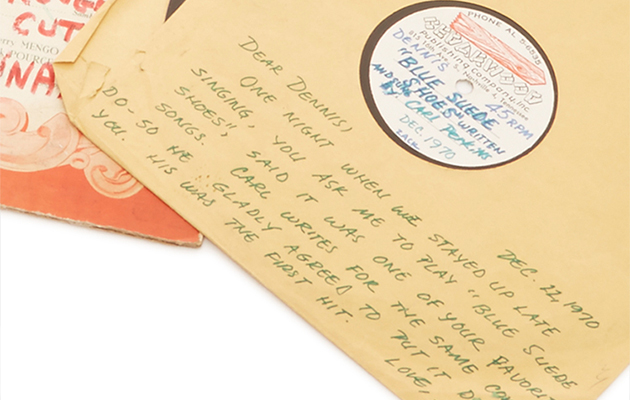 CUT
MENGO
PHONE AL 5-6535
CEDARWOOD
Publishing Company, Inc.
DENNIS
45 RPM
"BLUE SUEDE
SHOES" WRITTEN
BY CARL PERKINS
DEC. 1970
DEC. 22, 1970
DEAR DENNIS,
ONE NIGHT WHEN WE STAYED UP LATE
SINGING, YOU ASK ME TO PLAY "BLUE SUEDE
SHOES", SAID IT WAS ONE OF YOUR FAVORI
SONGS. CARL WRITES FOR THE SAME COM
DO- SO HE GLADLY AGREED TO PUT IT DO
YOU. HIS WAS THE FIRST HIT.
LOVE,